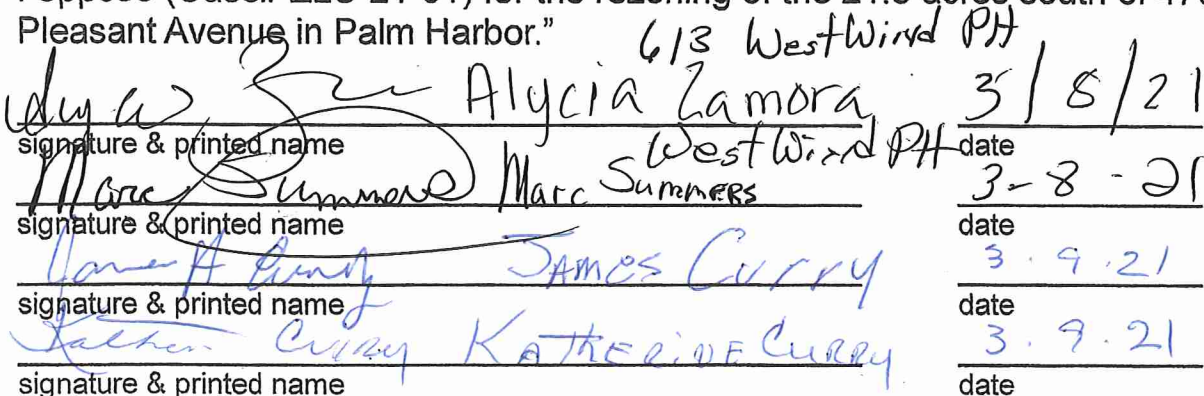 Pleasant Avenue in Palm Harbor.”
613 WestWind PH
Alycia Zamora 3/8/21
signature & printed name date
WestWind PH
Marc Summers Marc Summers 3-8-21
signature & printed name date
James A Curry James Curry 3.9.21
signature & printed name date
Curry Katherine Curry 3.9.21
signature & printed name date